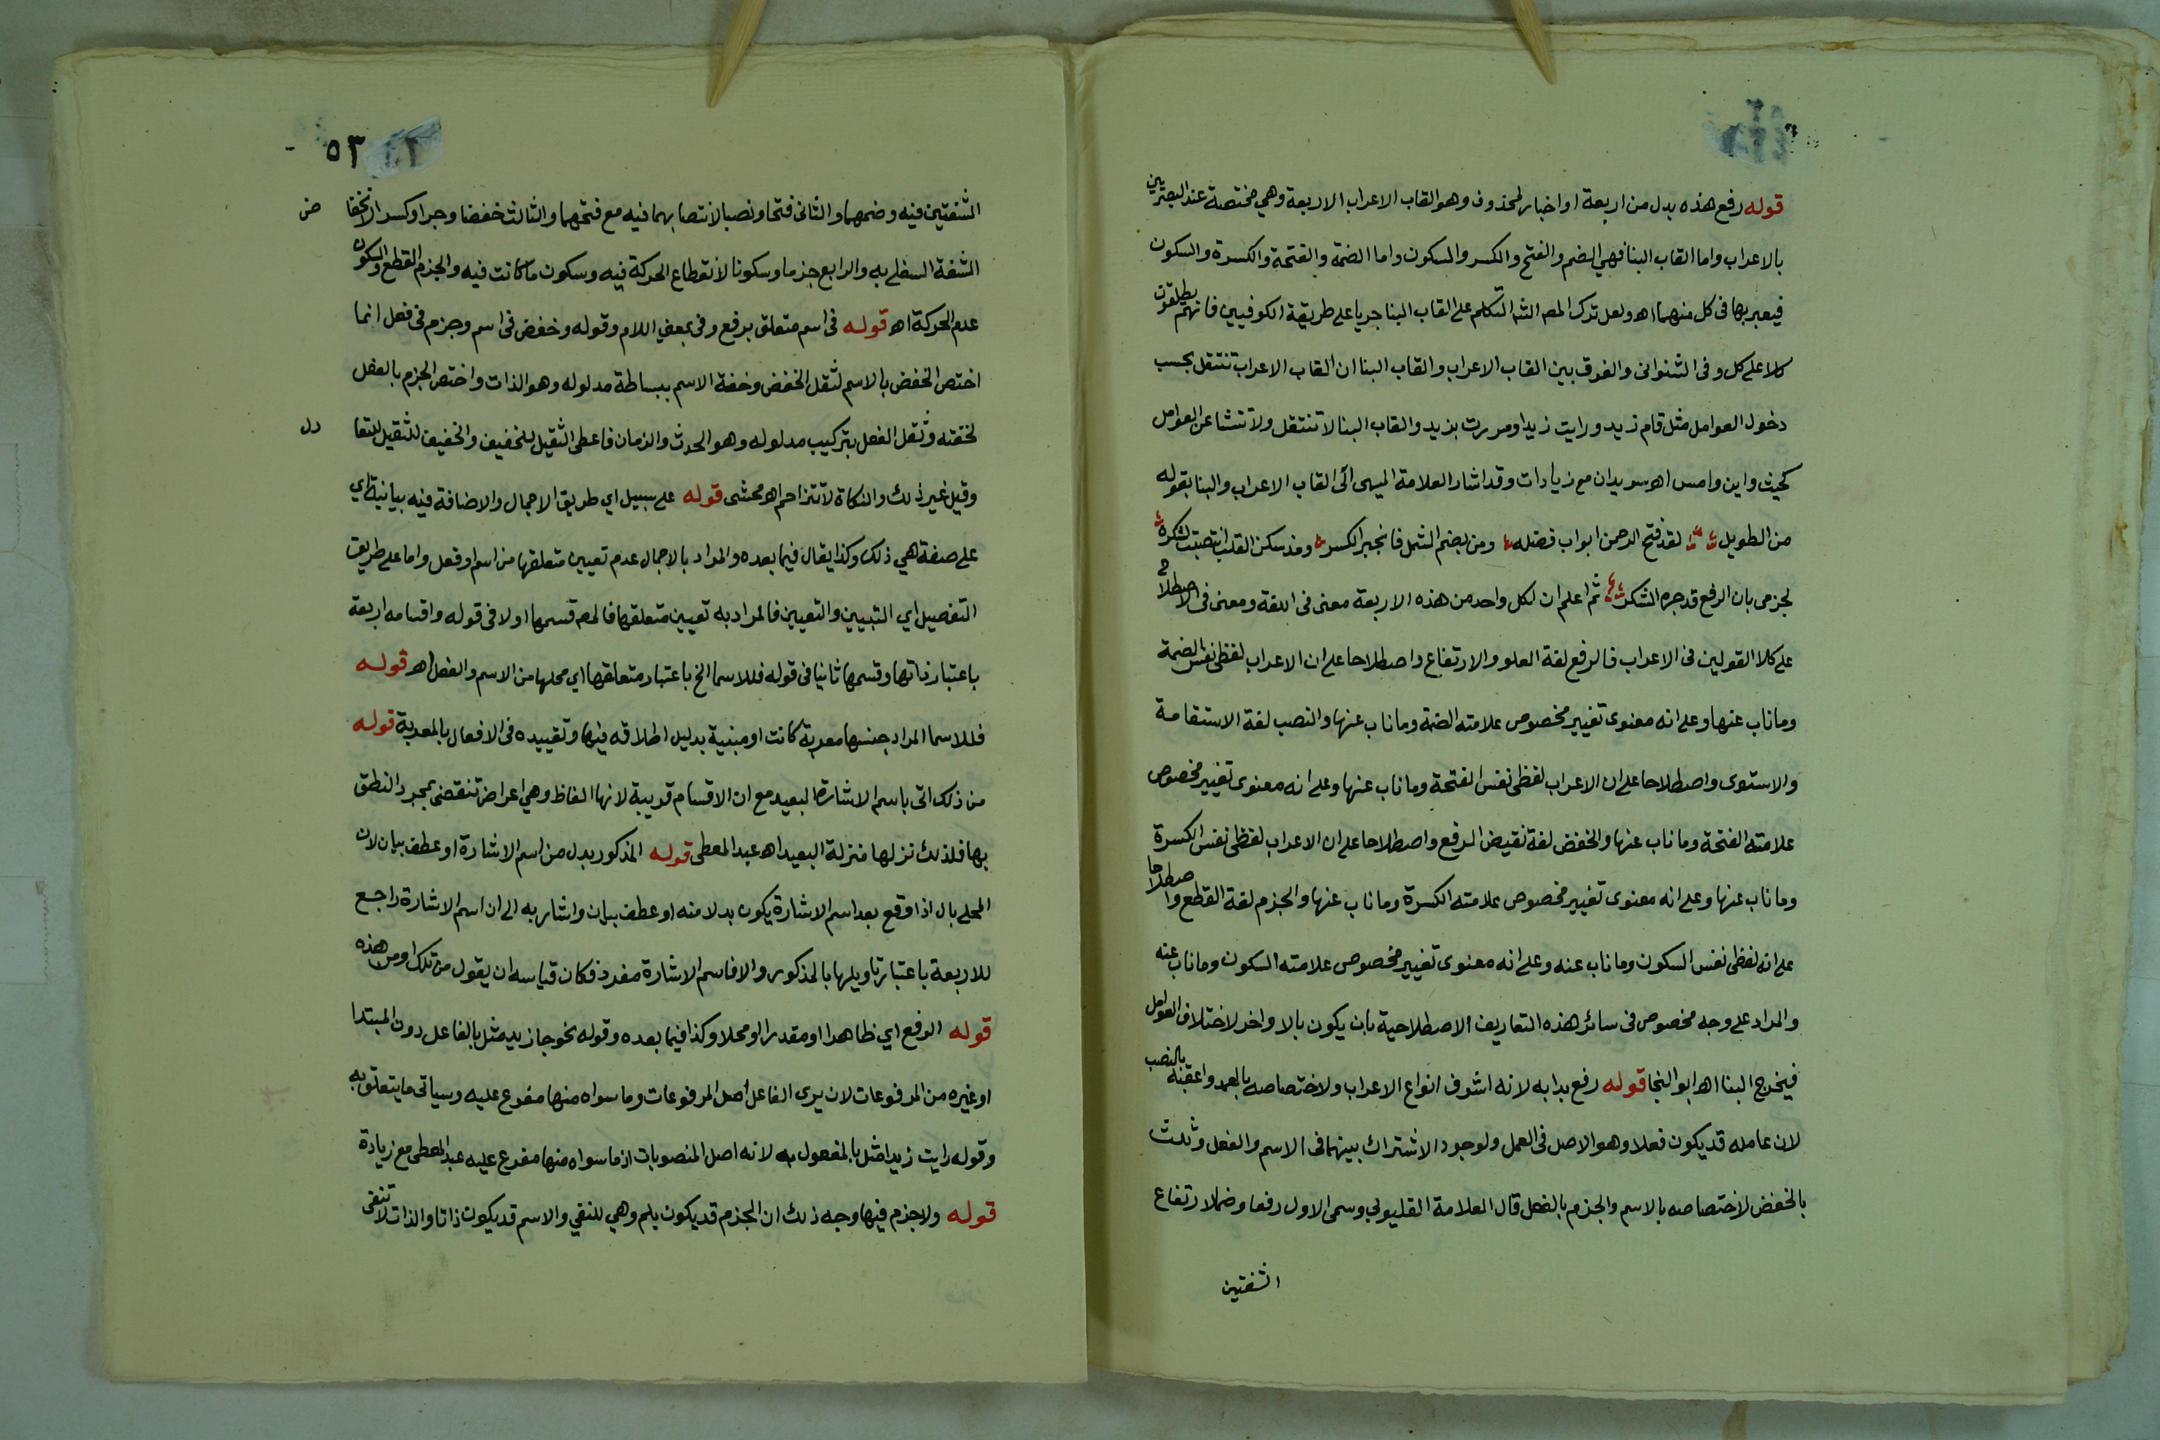 قوله رفع هذه بدل من اربعة او اخبار لمحذوف وهو القاب الاعراب الاربعة وهي مختصة عند البصريين
بالاعراب واما القاب البنا فهي الضم والفتح والكسر والسكون واما الضمة والفتحة والكسرة والسكون
فيعبر بها فى كل منهما اهـ ولعل ترك المصـ التكلم على القاب البنا جريا على طريقة الكوفيين فانهم يطلقون
كلا على كل وفى الشنوانى والفرق بين القاب الاعراب والقاب البنا ان القاب الاعراب تنتقل بحسب
دخول العوامل مثل قام زيد ورايت زيدا ومررت بزيد والقاب البنا لا تنتقل ولا تنشا عن العوامل
كحيث واين وامس اهـ سويدان مع زيادات وقد اشار العلامة الميهى الى القاب الاعراب والبنا بقوله
من الطويل لقد فتح الرحمن ابواب فضله ومن بضم الشمل فانجبر الكسر ومذ سكن القلب انتصبت لشكره
لجزمى بان الرفع قد جره الشكر ثم اعلم ان لكل واحد من هذه الاربعة معنى فى اللغة ومعنى فى الاصطلاح
على كلا القولين فى الاعراب فالرفع لغة العلو والارتفاع واصطلاحا على ان الاعراب لفظى نفس الضمة
وما ناب عنها وعلى انه معنوى تغيير مخصوص علامته الضمة وما ناب عنها والنصب لغة الاستقامة
والاستوى واصطلاحا على ان الاعراب لفظى نفس الفتحة وما ناب عنها وعلى انه معنوى تغيير مخصوص
علامته الفتحة وما ناب عنها والخفض لغة نقيض الرفع واصطلاحا على ان الاعراب لفظى نفس الكسرة
وما ناب عنها وعلى انه معنوى تغيير مخصوص علامته الكسرة وما ناب عنها والجزم لغة القطع واصطلاحا
على انه لفظى نفس السكون وما ناب عنه وعلى انه معنوى تغيير مخصوص علامته السكون وما ناب عنه
والمراد على وجه مخصوص فى سائر هذه التعاريف الاصطلاحية بان يكون بالاواخر لاختلاف العوامل
فيخرج البنا اهـ ابو النجا قوله رفع بدا به لانه اشرف انواع الاعراب ولاختصاصه بالعمد واعقبه بالنصب
لان عامله قد يكون فعلا وهو الاصل فى العمل ولوجود الاشتراك بينهما فى الاسم والفعل وثلث
بالخفض لاختصاصه بالاسم والجزم بالفعل قال العلامة القليوبي وسمى الاول رفعا وضما لارتفاع
الشفتين
٥٣
الشفتين فيه وضمهما والثانى فتحا ونصبا لانتصابهما فيه مع فتحهما والثالث خفضا وجرا وكسرا لانخفا
ض
الشفة السفلى به والرابع جزما وسكونا لانقطاع الحركة فيه وسكون ما كانت فيه والجزم القطع والسكون
عدم الحركة اهـ قوله فى اسم متعلق برفع وفى بمعنى اللام وقوله وخفض فى اسم وجزم فى فعل انما
اختص الخفض بالاسم لثقل الخفض وخفة الاسم ببساطة مدلوله وهو الذات واختص الجزم بالفعل
لخفته وثقل الفعل بتركيب مدلوله وهو الحدث والزمان فاعطى الثقيل للخفيف والخفيف للثقيل للتعا
دل
وقيل غير ذلك والنكاة لا تتزاحم اهـ محشى قوله على سبيل اي طريق الاجمال والاضافة فيه بيانية اي
على صفة هي ذلك وكذا يقال فيما بعده والمراد بالاجمال عدم تعيين متعلقها من اسم او فعل واما على طريق
التفصيل اي التبيين والتعيين فالمراد به تعيين متعلقها فالمصـ قسمها اولا فى قوله واقسامه اربعة
باعتبار ذاتها وقسمها ثانيا فى قوله فللاسما الخ باعتبار متعلقها اي محلها من الاسم والفعل اهـ قوله
فللاسما المراد جنسها معربة كانت او مبنية بدليل اطلاقه فيها وتقييده فى الافعال بالمعربة قوله
من ذلك اتى باسم الاشارة البعيد مع ان الاقسام قريبة لانها الفاظ وهي اعراض تنقضى بمجرد النطق
بها فلذلك نزلها منزلة البعيد اهـ عبد المعطى قوله المذكور بدل من اسم الاشارة او عطف بيان لان
المحلى بال اذا وقع بعد اسم الاشارة يكون بدلا منه او عطف بيان واشار به الى ان اسم الاشارة راجع
للاربعة باعتبار تاويلها بالمذكور والا فاسم الاشارة مفرد فكان قياسه ان يقول من تلك او من هذه
قوله الرفع اي ظاهرا او مقدرا او محلا وكذا فيما بعده وقوله نحو جا زيد مثل بالفاعل دون المبتدا
او غيره من المرفوعات لان يرى الفاعل اصل المرفوعات وما سواه منها مفرع عليه وسياتى ما يتعلق به
وقوله رايت زيدا مثل بالمفعول به لانه اصل المنصوبات اذ ما سواه منها مفرع عليه عبد المعطى مع زيادة
قوله ولا جزم فيها وجه ذلك ان الجزم قد يكون بلم وهي للنفي والاسم قد يكون ذاتا والذات لا تنفى